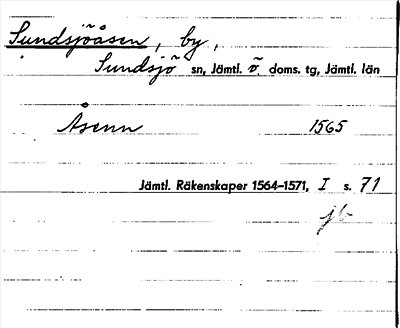 Sundsjöåsen, by,
Sundsjö sn, Jämtl. ö. doms. tg, Jämtl. län
Åsenn 1565
Jämtl. Räkenskaper 1564–1571, I s. 71